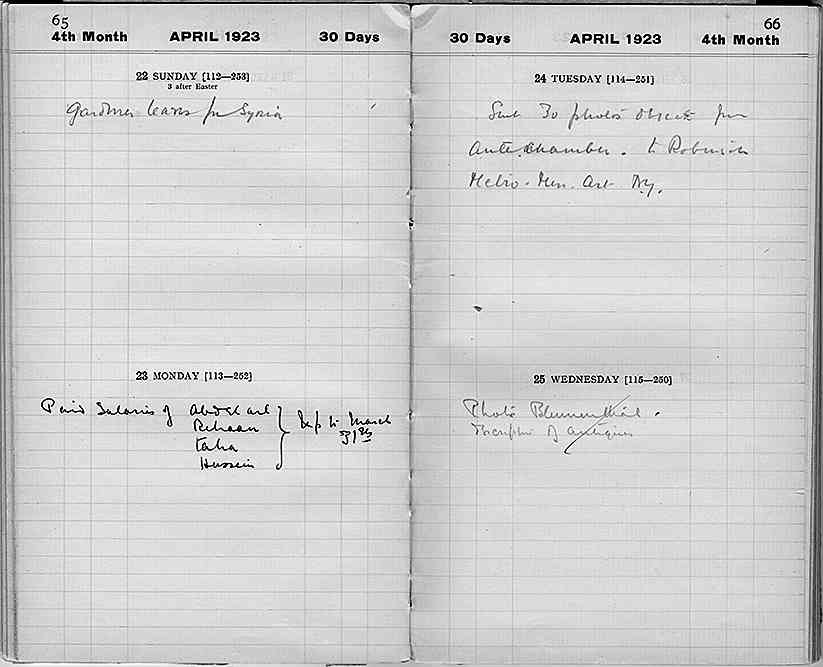 65
4th Month APRIL 1923 30 Days
22 SUNDAY [112—253]
3 after Easter
Gardiner leaves for Syria
23 MONDAY [113—252]
Paid Salaries of Abdel aal
Rehaan
Taha
Hussein
up to March
31st
66
30 Days APRIL 1923 4th Month
24 TUESDAY [114—251]
Sent 30 photos objects from
Antechamber. to Robinson
Metro. Mus. Art N.Y.
25 WEDNESDAY [115—250]
Photo Blumenthal.
of antiques